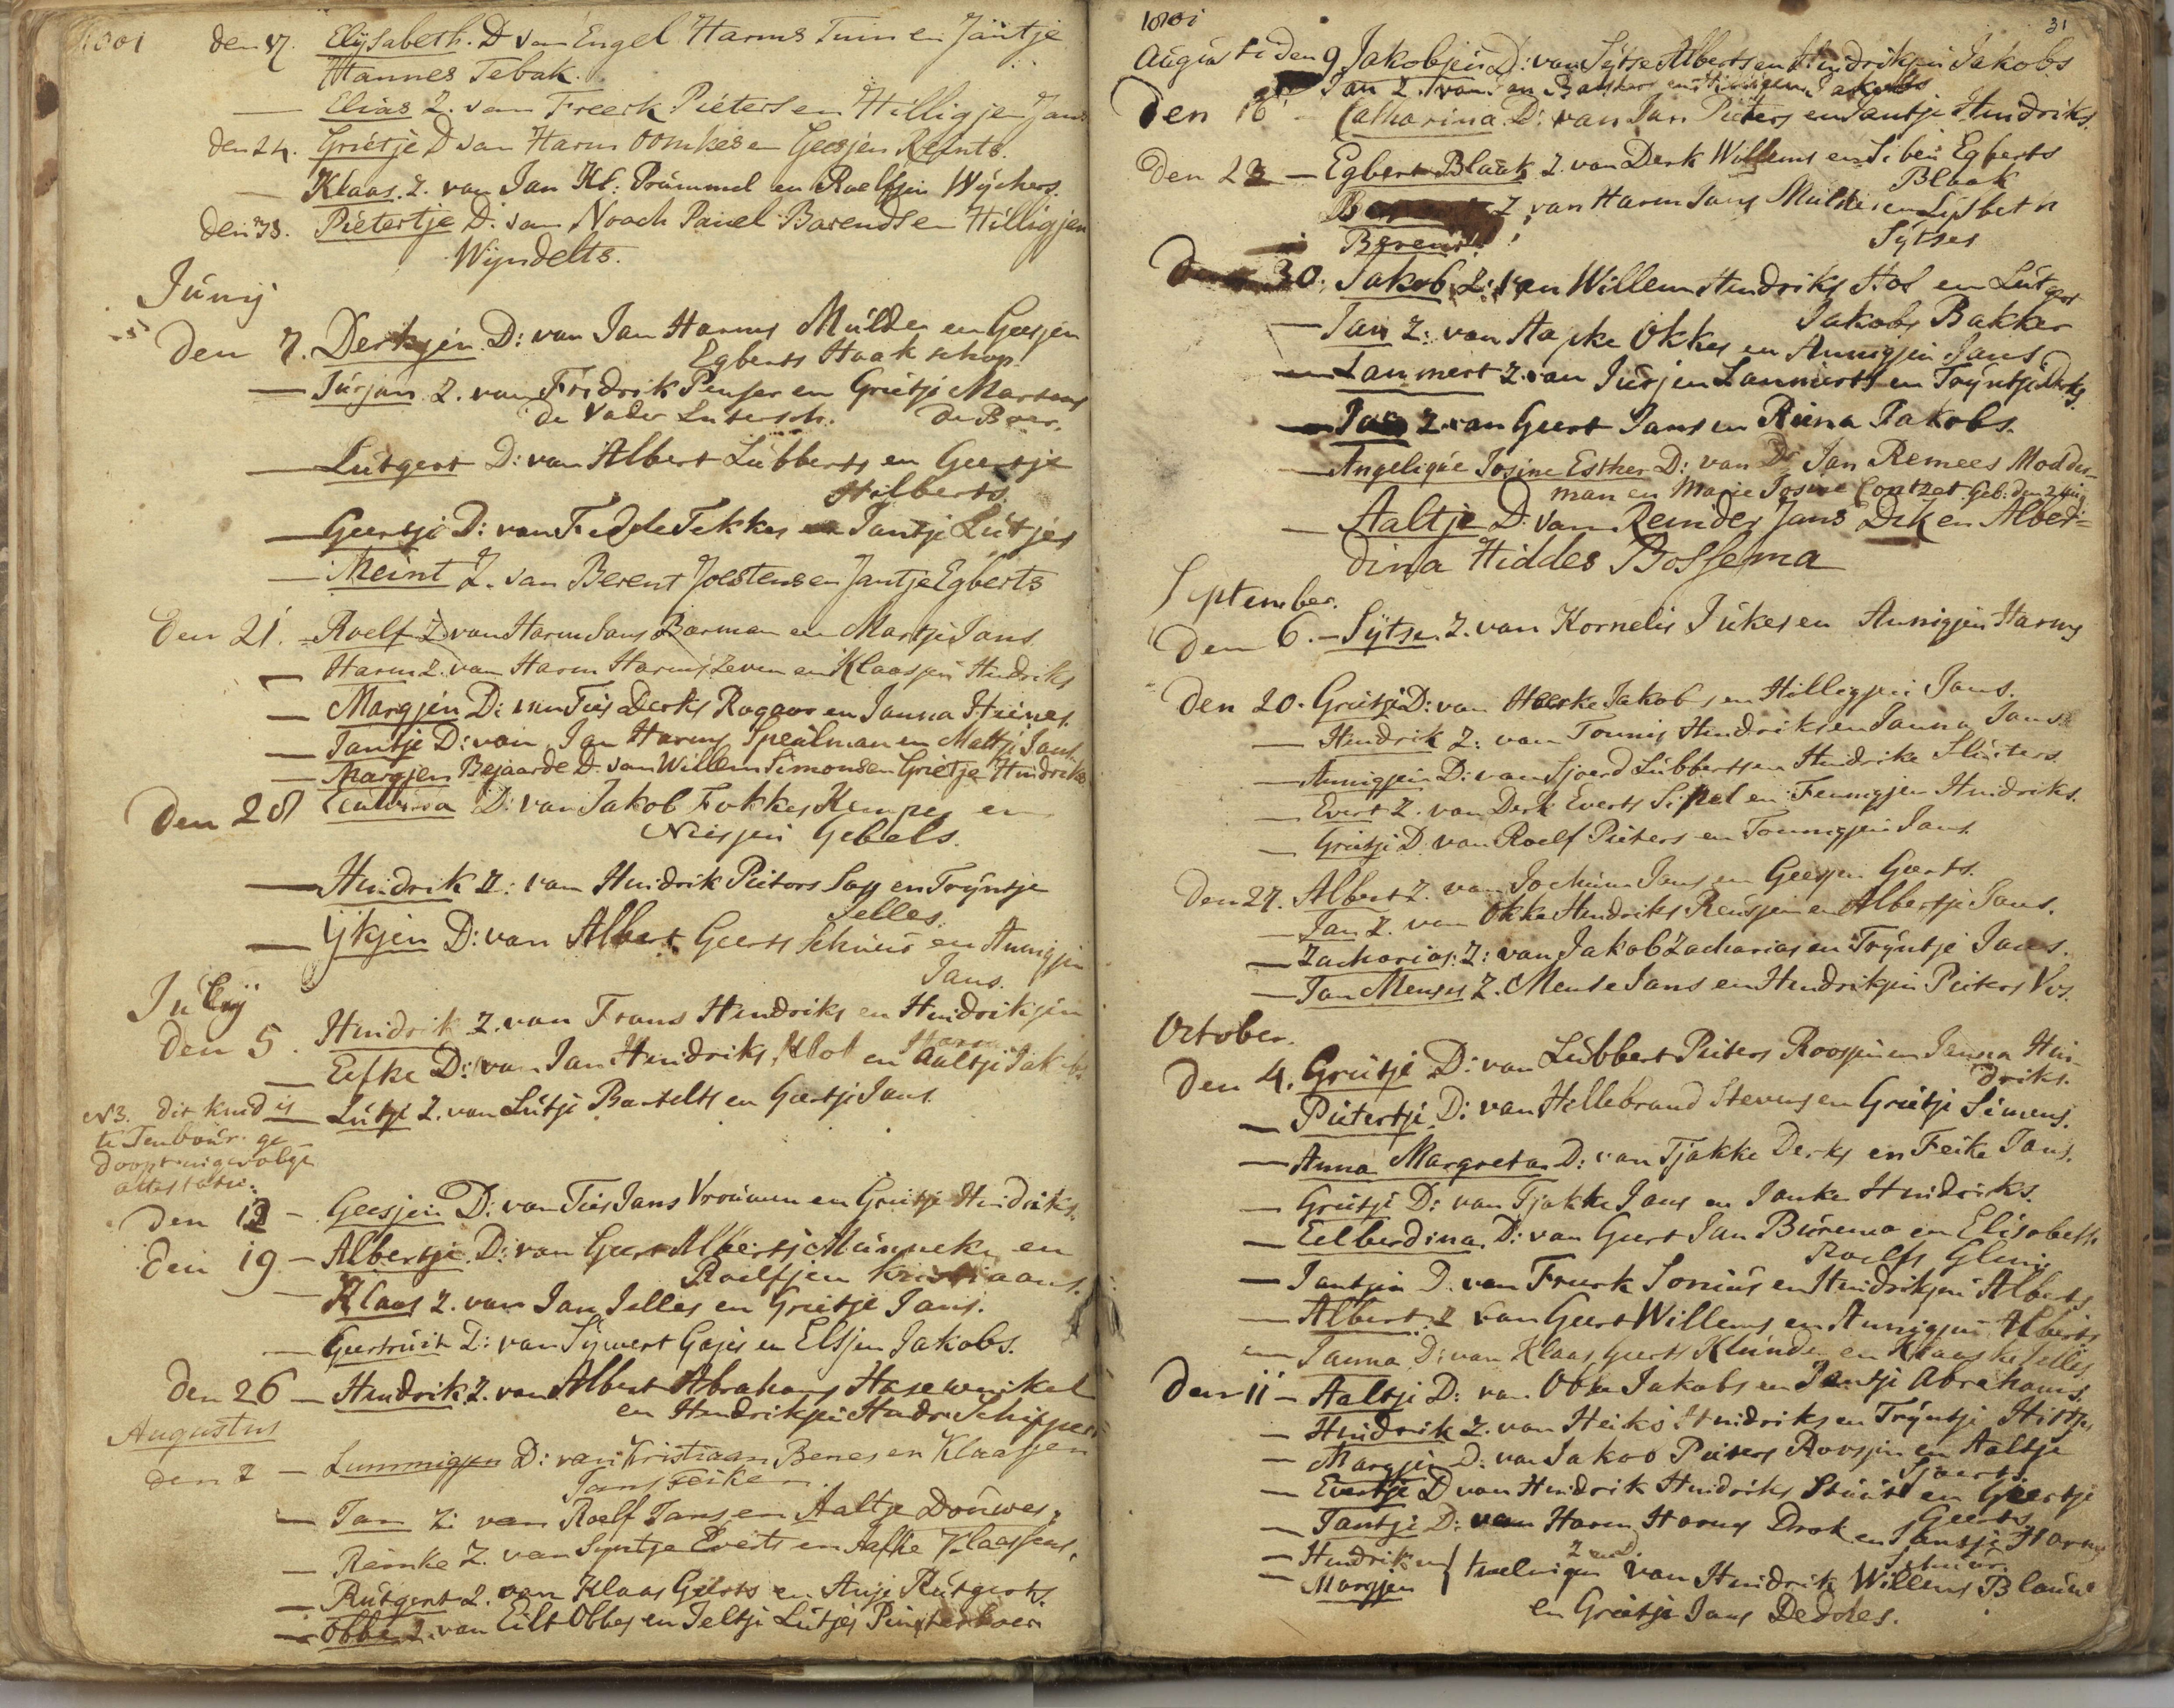 1801 den 17. Elÿsabeth. D van Engel Harms Tuin en Jantje
Hannes Tebak.
— Elias Z. van Freerk Pieters en Hilligjen Jans
den 24. Grietje D van Harm Oomkes en Geesjen Reints.
— Klaas. Z. van Jan Kl: Prummel en Roelfjen Wychers.
den 33. Pietertje D. van Noach Pauel Barends en Hilligjen
Wyndelts.
Junij
den 7. Derkjen. D: van Jan Harms Mulder en Geesjen
Egberts Haakschop
— Jurjan. Z. van Fridrik Penser en Grietje Martens
de Vader Lutersch. de Boer.
— Lutgert D: van Albert Lubberts en Geertje
Hilberts.
— Geertje D: van Fedde Fekkes en Jantje Lutjes
— Meint Z. van Berent Joestens en Jantje Egberts
Den 21. – Roelf Z van Harm Jans Barman en Martje Jans
— Harm Z. van Harm Harms Zeven en Klaasjen Hindriks
— Margjen D: van Ties Derks Rogaar en Janna Heines.
— Jantje D: van Jan Harms Speulman en Mattje Jans
— Margjen Bejaarde D. van Willem Simons en Grietje Hindriks
Den 28 D: van Jakob Fokkes Kemper en
Niesjen Gebels.
— Hindrik Z: van Hindrik Pieters Sap en Trÿntje
Jelles.
— Ijkjen D: van Albert Geerts Schuur en Annigjen
Jans.
Julij
Den 5. Hindrik Z. van Frans Hindriks en Hindrikjen
Harms
— Eefke D: van Jan Hindriks Klot en Aaltje Jakobs
N3. dit kind is — Lutje Z. van Lutje Bartelts en Geertje Jans
te Tenboer ge
doopt ingevolge
attestatie.
Den 12 – Geesjen D: van Ties Jans Vrouwen en Grietje Hindriks.
Den 19 – Albertje. D: van Geert Alberts Mannek en
Roelfjen Kristiaans.
— Klaas Z. van Jan Jelles en Grietje Jans.
— Geertruit D: van Sywert Gajes en Elsjen Jakobs.
Den 26 – Hindrik Z. van Albert Abrahams Hasewinkel
en Hindrikjen Hindr. Schipper
Augustus
den 2 – Lummigjen D: van Kristiaan Benes en Klaasjen
Jans Feiken.
— Jan Z: van Roelf Jans en Aaltje Douwes.
— Remke Z. van Syntje Everts en Aafke Klaassens.
— Rutgert Z. van Klaas Geerts en Antje Rutgerts.
— Obbe Z. van Eilt Obbes en Jeltje Lutjes Pinksterboer
1801 31
Augusti Den 9 Jakobjen D: van Sytse Alberts en Hindrikjen Jakobs
Jan Z. van Jan Bakker en Jakobs
Den 16 – Catharina. D: van Jan Pieters en Jantje Hindriks.
Den 23 – Egbert Blaak Z. van Derk Willems en Siben Egberts
Blaak
Z. van Harm Jans Mulder en Lysbeth
Berent. Sytses
Den 30. Jakob Z: van Willem Hindriks Hos en Lutgert
Jakobs Bakker
— Jan Z: van Hapke Okkes en Annigjen Jans
— Lammert Z. van Jurjen Lammerts en Trÿntje Derks.
— Jan Z. van Geert Jans en Riena Jakobs.
— Angeliqúe Josine Esther D: van Dr Jan Remees Modder-
man en Marie Josine Contzet. Geb. den 2 Aug
— Aaltje D. van Reinder Jans Dik en Alber-
dina Hiddes Bossema
September.
Den 6. – Sÿtse. Z. van Kornelis Jukes en Annigjen Harms
Den 20. Grietje D: van Heerke Jakobs en Hilligjen Jans.
— Hindrik Z: van Tonnis Hindriks en Janna Jans.
— Annigjen D: van Sjoerd Lubberts en Hindrike Sluiters.
— Evert Z. van Derk Everts Sipel en Fennigjen Hindriks.
— Grietje D. van Roelf Pieters en Tonnigjen Jans.
Den 27. Albert Z. van Jochum Jans en Geesjen Geerts.
— Jan Z. van Okke Hindriks Reusjen en Albertje Jans.
— Zacharias. Z: van Jakob Zacharias en Trÿntje Jans.
— Jan Menses Z. Mense Jans en Hindrikjen Pieters Vos.
October.
Den 4. Grietje D: van Lubbert Pieters Roosjen en Janna Hin-
driks.
— Pietertje. D: van Hillebrand Stevens en Grietje Simens.
— Anna Margreta D: van Tjakke Derks en Feike Jans.
— Grietje D: van Tjakke Jans en Janke Hindriks.
— Eelberdina. D: van Geert Jan Burema en Elisabeth
Roelfs Glim
— Jantjen D. van Freerk Sonius en Hindrikjen Alberts
— Albert. Z van Geert Willems en Annigjen Alberts
— Janna D: van Klaas Geerts Klunder en Klaaske Jelles
Den 11 – Aaltje D: van Obbe Jakobs en Jantje Abrahams.
— Hindrik Z. van Heiko Hindriks en Trÿntje Hittjes
— Margjen D: van Jakob Pieters Roosjen en Aaltje
Sjoerts
— Evertje D van Hindrik Hindriks Stuit en Geertje
Geerts
— Jantje D: van Harm Harms Drok en Jantje Harms
Schuur.
— Hindrik en } Z en D.
— Margjen } tweelingen van Hindrik Willems Blauw
en Grietje Jans Deddes.